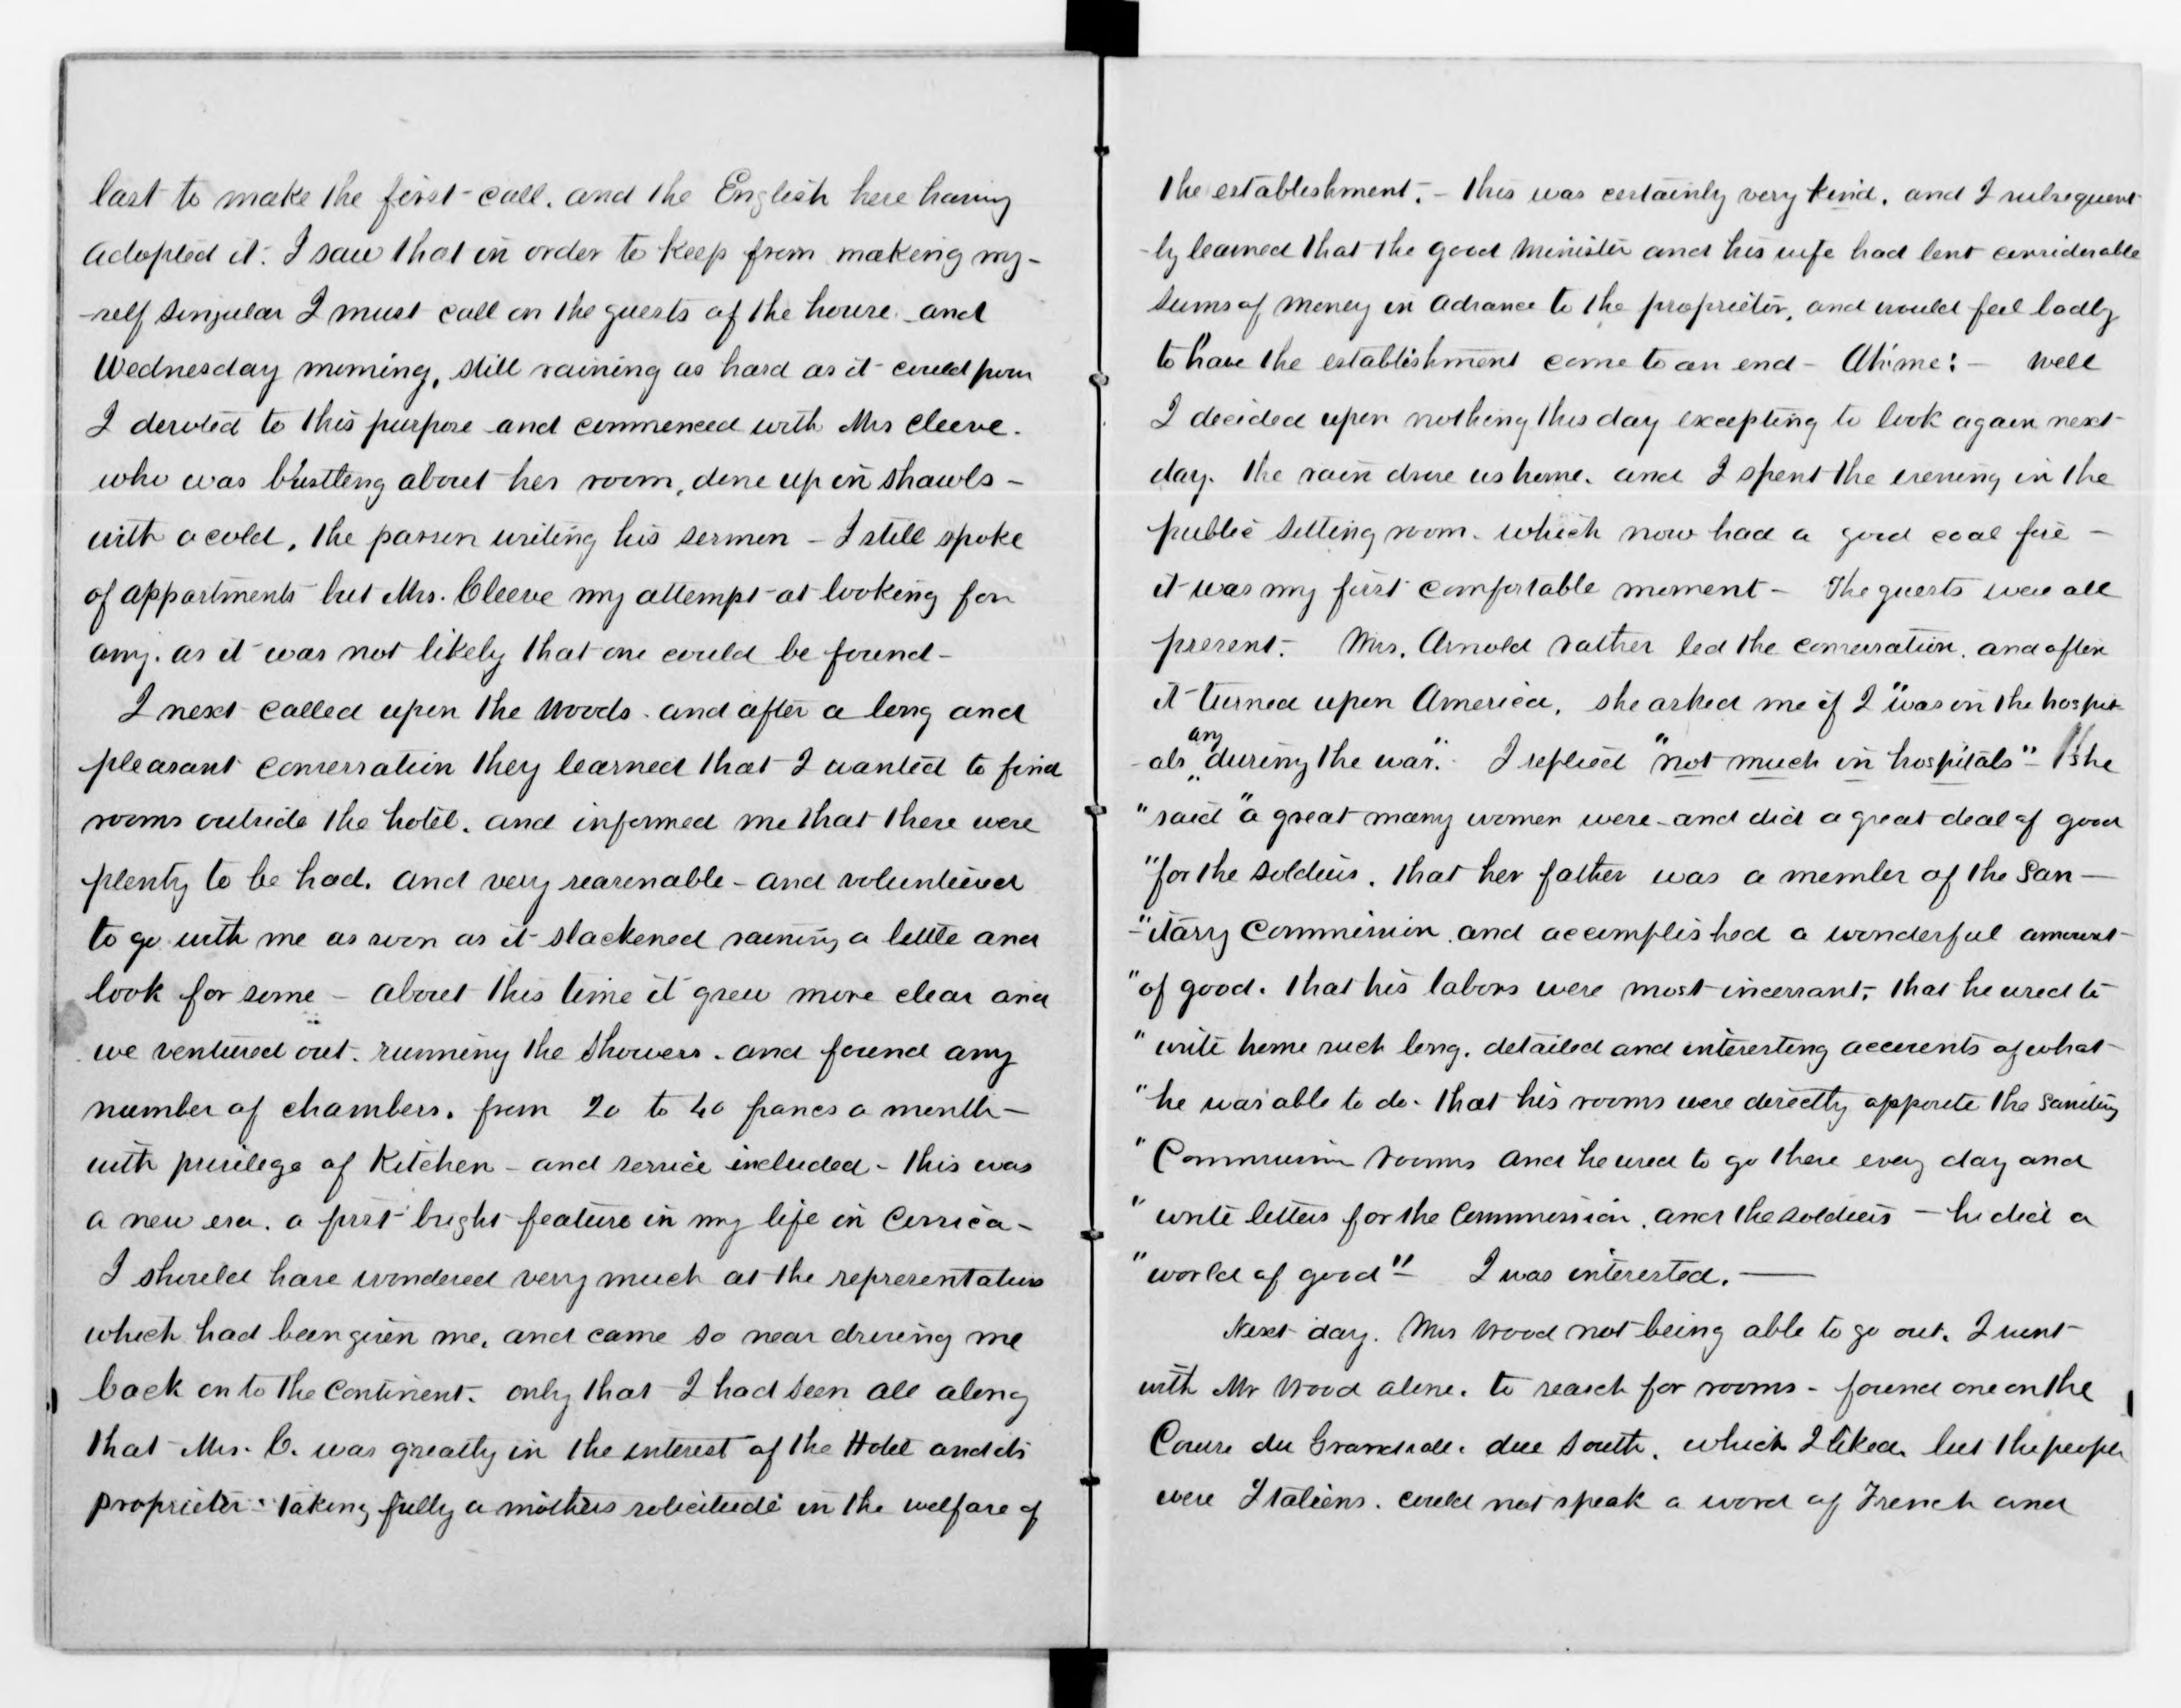 last to make the first call. and the English here having
adopted it. I saw that in order to keep from making my-
-self singular I must call on the guests of the house. and
Wednesday morning, still raining as hard as it could pour
I devoted to this purpose and commenced with Mrs Cleeve.
who was bustling about her room, done up in shawls -
with a cold, the parson writing his sermon - I still spoke
of appartments but Mrs. Cleeve my attempt at looking for
any. as it was not likely that one could be found -
I next called upon the Woods. and after a long and
pleasant conversation they learned that I wanted to find
rooms outside the hotel. and informed me that there were
plenty to be had. and very reasonable - and volunteered
to go with me as soon as it slackened raining a little and
look for some - about this time it grew more clear and
we ventured out. running the showers. and found any
number of chambers. from 20 to 40 francs a month -
with privilege of Kitchen - and service included - this was
a new era. a first bright feature in my life in Corsica -
I should have wondered very much at the representations
which had been given me, and came so near driving me
back on to the Continent. only that I had seen all along
that Mrs. C. was greatly in the interest of the Hotel and its
proprietor. taking fully a mothers solicitude in the welfare of
the establishment. - this was certainly very kind. and I subsequent
-ly learned that the good minister and his wife had lent considerable
sums of money in advance to the proprietor, and would feel badly
to have the establishment come to an end - Ah! me! - Well
I decided upon nothing this day excepting to look again next
day. the rain drove us home. and I spent the evening in the
public sitting room. which now had a good coal fire -
it was my first comfortable moment - The guests were all
present. Mrs. Arnold rather led the conversation. and often
it turned upon America, she asked me if I "was in the hospit-
-als any during the war". I replied "not much in hospitals" - She
"said "a great many women were - and did a great deal of good
"for the soldiers. that her father was a member of the San -
-"itary Commission. and accomplished a wonderful amount
"of good. that his labors were most incessant, that he used to
"write home such long, detailed and interesting accounts of what
"he was able to do. that his rooms were directly opposite the Sanitary
"Commission rooms and he used to go there every day and
"write letters for the Commission, and the soldiers - he did a
"world of good" - I was interested. -
Next day. Mrs Wood not being able to go out. I went
with Mr Wood alone. to search for rooms - found one on the
Course du Grandvalle. due South. which I liked, but the people
were Italiens. could not speak a word of French and